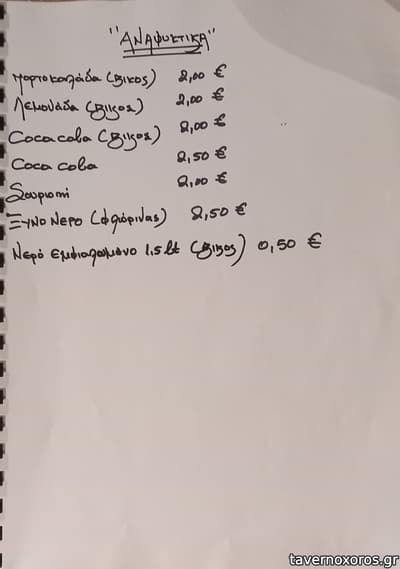 "ΑΝΑΨΥΚΤΙΚΑ"
Πορτοκαλάδα (Βικος) 2,00 €
Λεμονάδα (Βικος) 2,00 €
Coca cola (Βικος) 2,00 €
Coca cola 2,50 €
Σουρωτή 2,00 €
ΞΥΝΟ ΝΕΡΟ (Φλώρινας) 2,50 €
Νερό εμφιαλωμένο 1,5 lt (Βικος) 0,50 €
tavernoxoros.gr